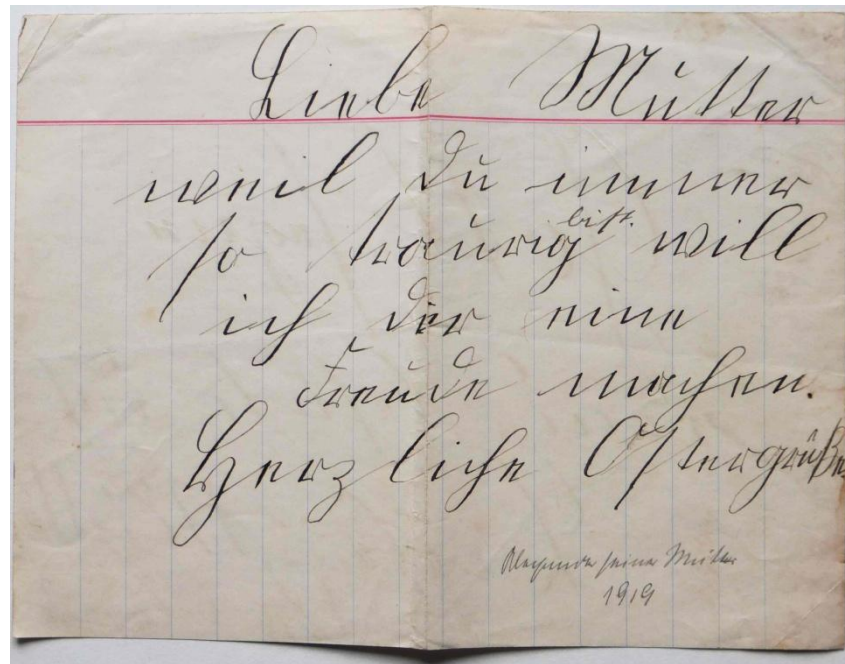 Liebe Mutter
weil Du immer
so traurig bist. will
ich dir eine
Freude machen.
Herzliche Ostergrüße
seiner Mutter
1919